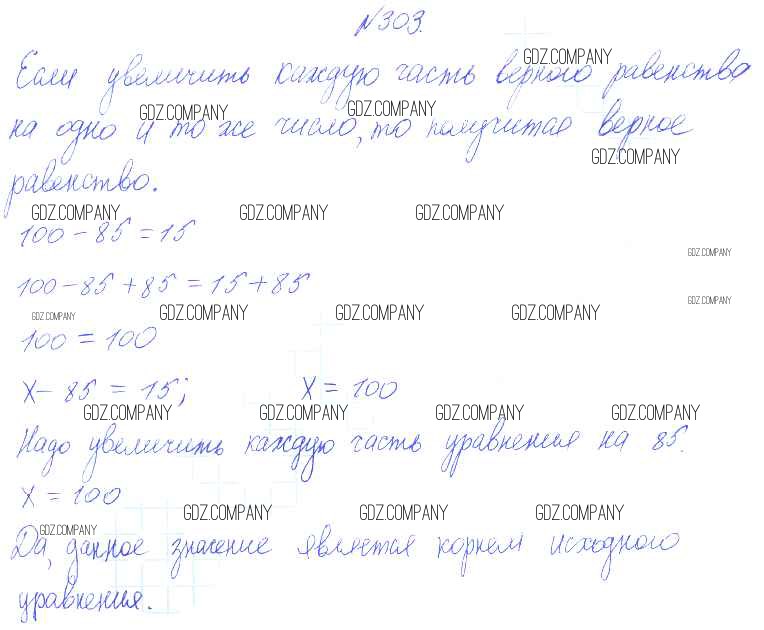 №303.
Если увеличить каждую часть верного равенства
на одно и то же число, то получится верное
равенство.
100 - 85 = 15
100 - 85 + 85 = 15 + 85
100 = 100
X - 85 = 15; X = 100
Надо увеличить каждую часть уравнения на 85.
X = 100
Да, данное значение является корнем исходного
уравнения.
GDZ.COMPANY
GDZ.COMPANY GDZ.COMPANY
GDZ.COMPANY
GDZ.COMPANY GDZ.COMPANY GDZ.COMPANY
GDZ.COMPANY
GDZ.COMPANY
GDZ.COMPANY GDZ.COMPANY GDZ.COMPANY GDZ.COMPANY
GDZ.COMPANY GDZ.COMPANY GDZ.COMPANY GDZ.COMPANY
GDZ.COMPANY GDZ.COMPANY GDZ.COMPANY
GDZ.COMPANY